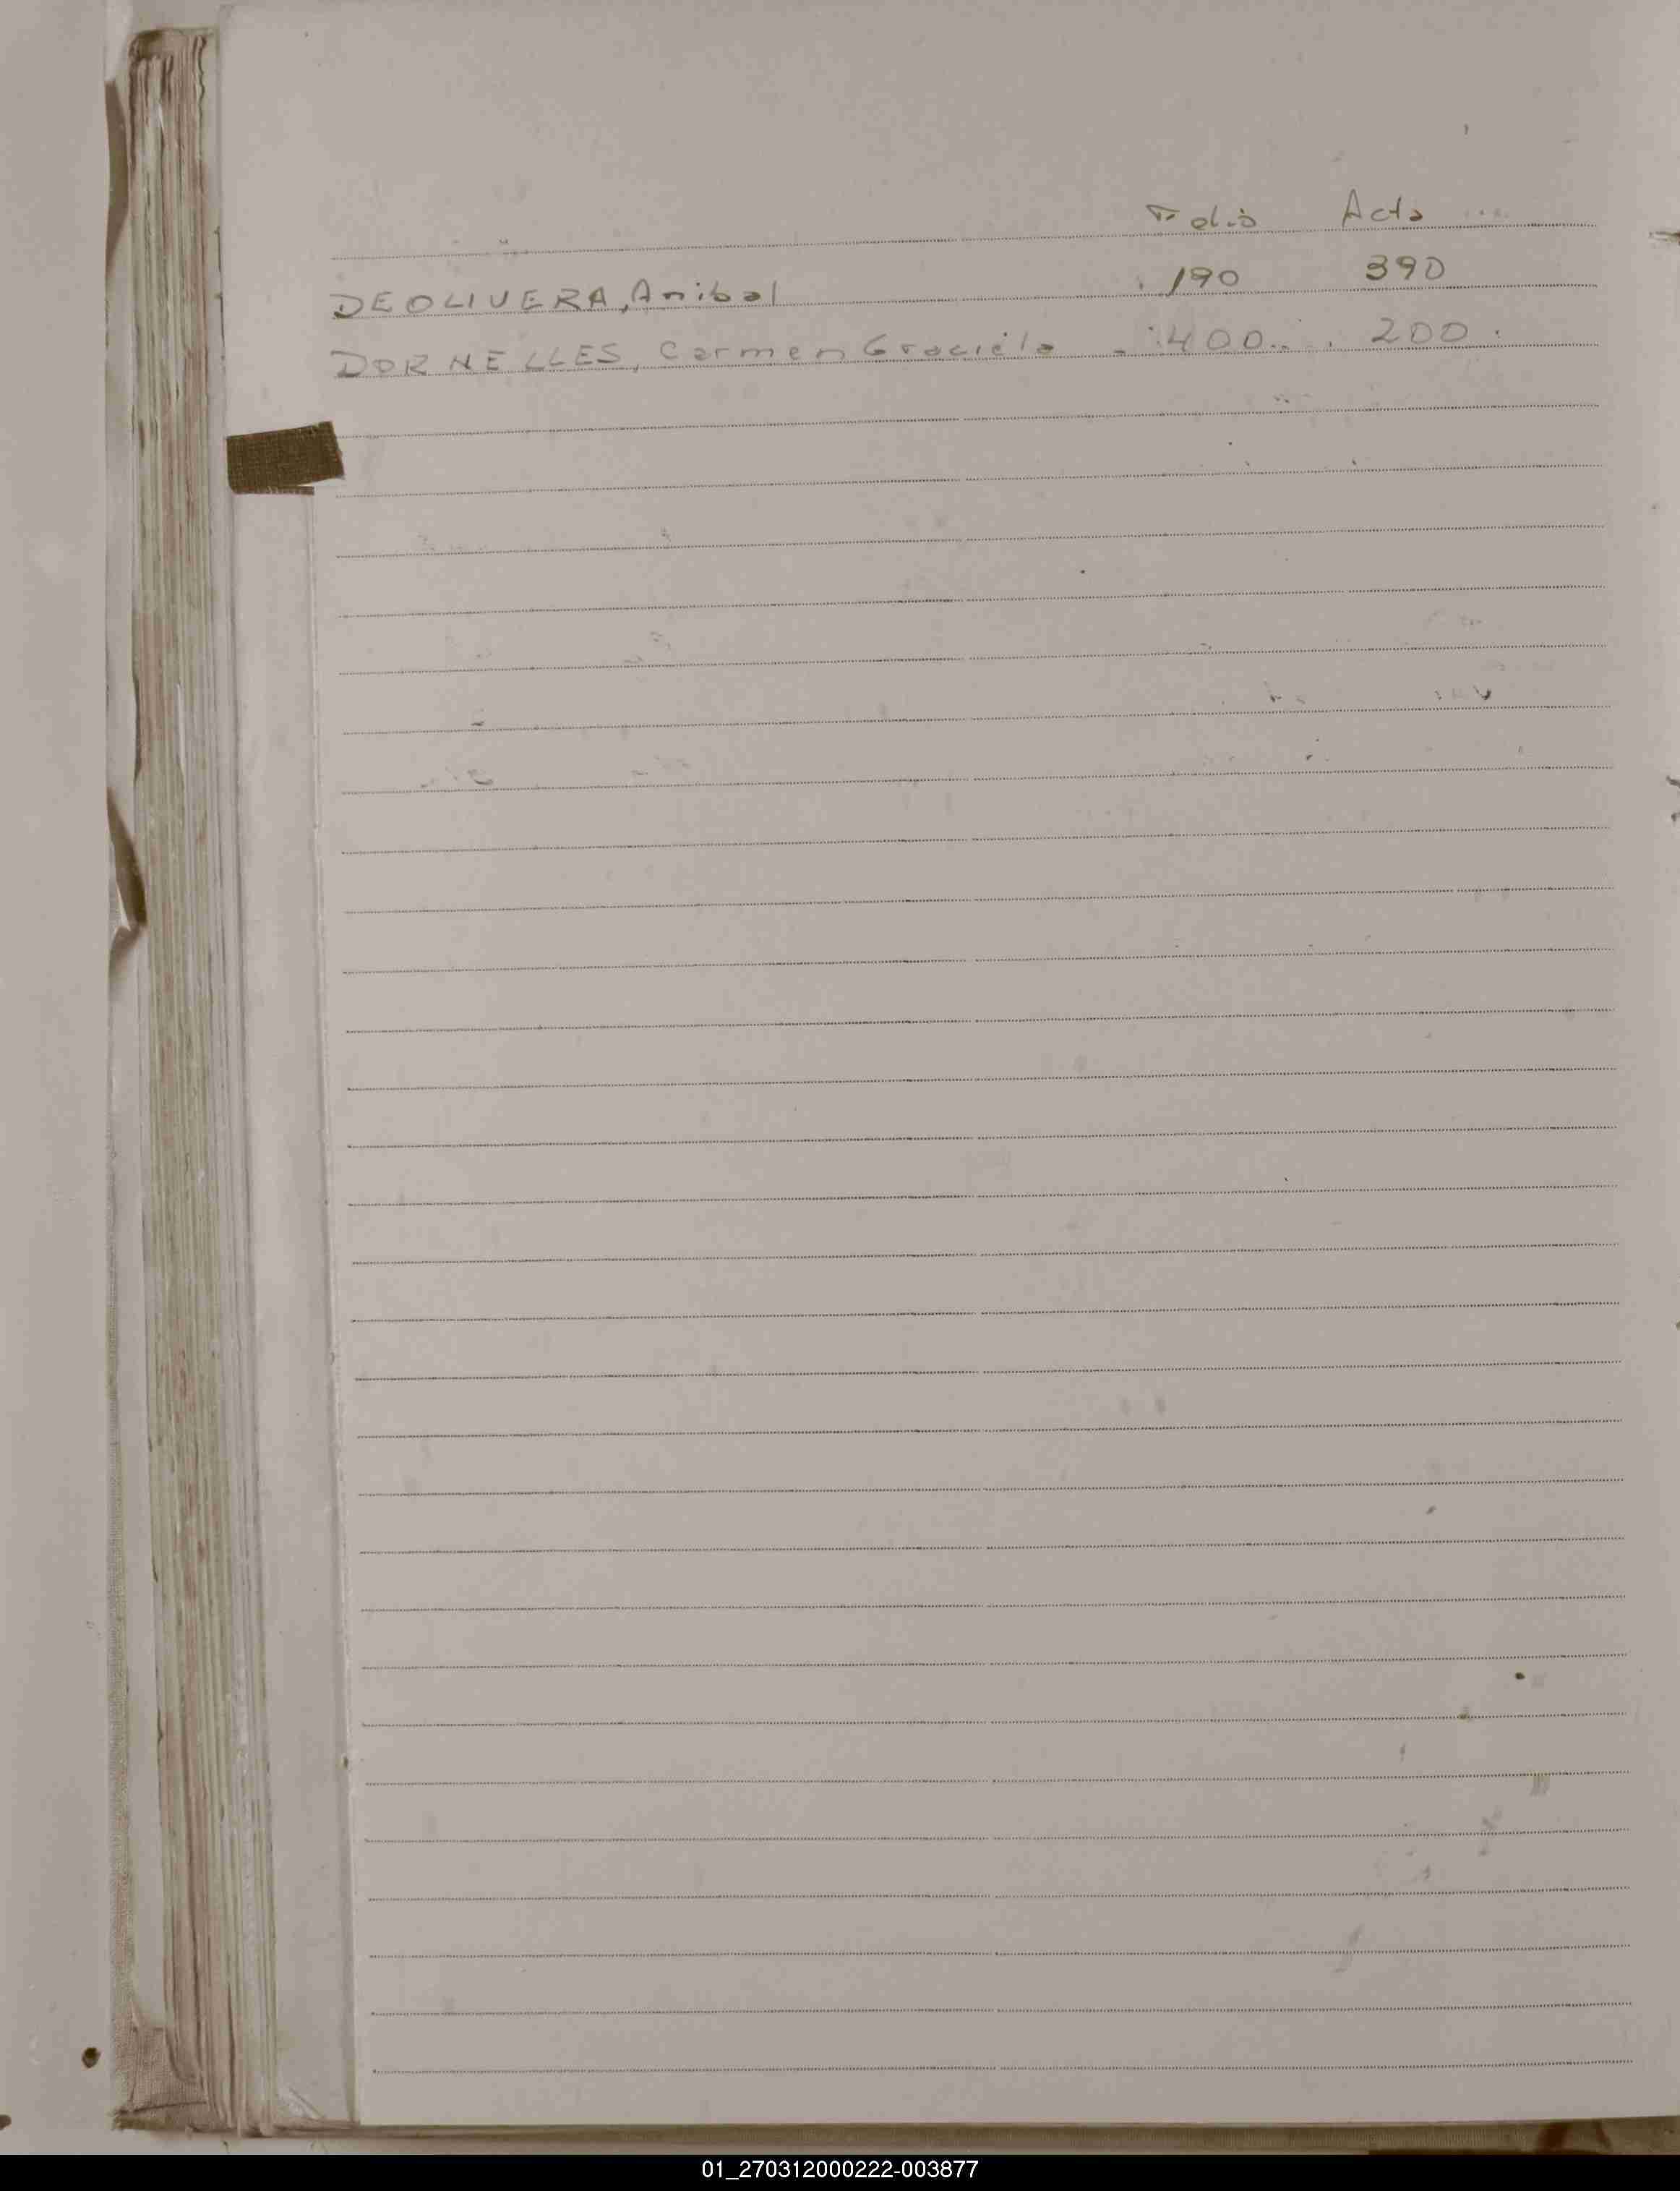 Folio Acta
DEOLIVERA, Anibal 190 390
DORNELLES, Carmen Graciela - 400 200
01_270312000222-003877